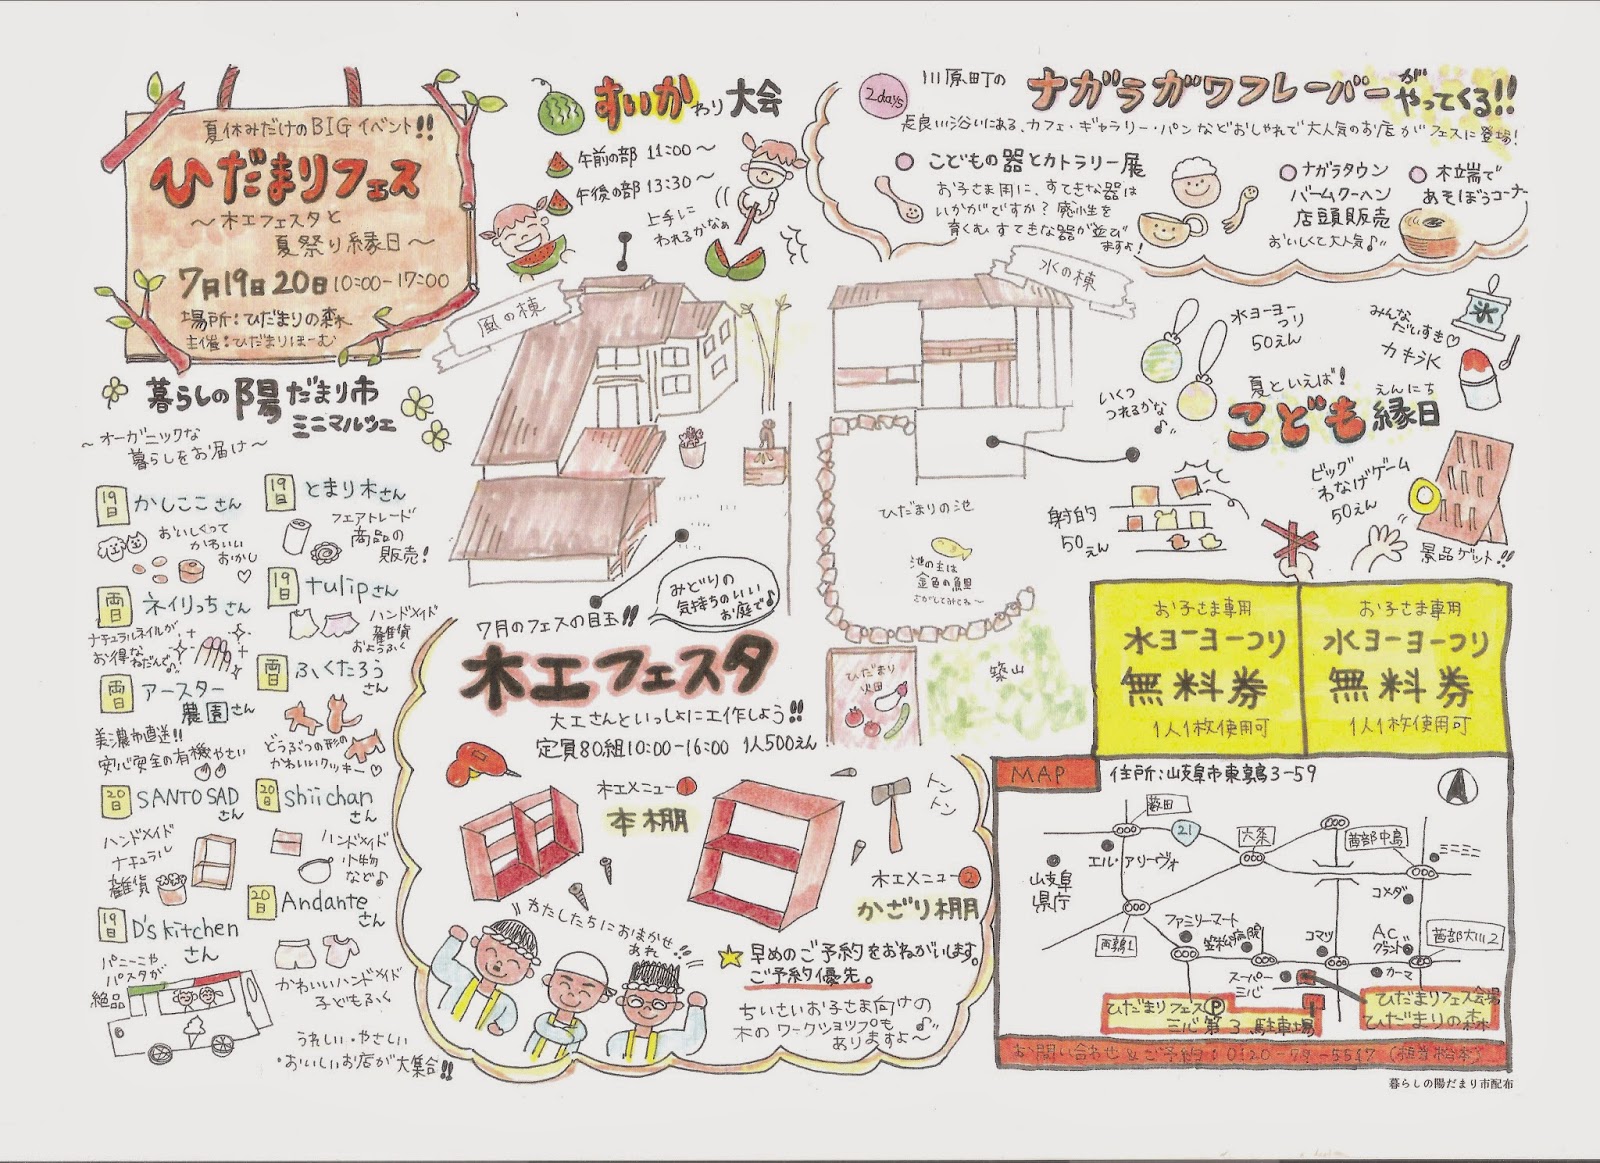 夏休みだけのBIGイベント!!
ひだまりフェス
〜木工フェスタと
夏祭り縁日〜
7月19日20日10:00-17:00
場所:ひだまりの森
主催:ひだまりほーむ
すいかわり大会
午前の部 11:00〜
午後の部 13:30〜
上手に
われるかなぁ
2days
川原町の
ナガラガワフレーバーが
やってくる!!
長良川沿いにある、カフェ・ギャラリー・パンなどおしゃれで大人気のお店がフェスに登場!
こどもの器とカトラリー展
お子さま用に、すてきな器は
いかがですか?感性を
育くむすてきな器が並び
ますよ!
ナガラタウン
バームクーヘン
店頭販売
おいしくて大人気♪
木立端で
あそぼうコーナー
風の棟
水の棟
暮らしの陽だまり市
ミニマルシェ
〜オーガニックな
暮らしをお届け〜
19日
かしここさん
おいしくって
かわいい
おかし♡
19日
とまり木さん
フェアトレード
商品の
販売!
両日
ネイリっちさん
ナチュラルネイルが
お得な
ねだんで♪
19日
tulipさん
ハンドメイド
雑貨
およふく
両日
アースター
農園さん
美濃から直送!!
安心安全の有機やさい
両日
ふくたろう
さん
どうぶつの形の
かわいいクッキー♡
20日
SANTO SAD
さん
ハンドメイド
ナチュラル
雑貨
20日
shiichan
さん
ハンドメイド
小物
など♪
19日
D's kitchen
さん
パニーニや
パスタが
絶品
20日
Andante
さん
かわいいハンドメイド
子どもふく
うれしい・やさしい
・おいしいお店が大集合!!
みどりの
気持ちのいい
お庭で♪
7月のフェスの目玉!!
木工フェスタ
大工さんといっしょに工作しよう!!
定員80組10:00-16:00 1人500えん
木工メニュー1
本棚
トントン
木工メニュー2
かざり棚
わたしたちにおまかせ
あれ!!
☆早めのご予約をおねがいします。
ご予約優先。
ちいさいお子さま向けの
木のワークショップも
ありますよ〜
ひだまりの池
池の主は
金色の魚
さがしてみてね〜
ひだまり
畑
築山
水ヨーヨー
つり
50えん
いくつ
つれるかな♪
みんな
だいすき♡
カキ氷
氷
夏といえば!
えんにち
こども縁日
射的
50えん
ビッグ
わなげゲーム
50えん
景品ゲット!!
お子さま専用
水ヨーヨーつり
無料券
1人1枚使用可
お子さま専用
水ヨーヨーつり
無料券
1人1枚使用可
MAP
住所:岐阜市東鶉3-59
藪田
21
六条
茜部中島
ミニミニ
エル・アリーヴォ
岐阜
県庁
コメダ
西鶉1
ファミリーマート
笠松病院
コマツ
AC
グランド
茜部大川2
スーパー
三心
カーマ
ひだまりフェスP
三心第3駐車場
ひだまりフェス会場
ひだまりの森
暮らしの陽だまり市配布